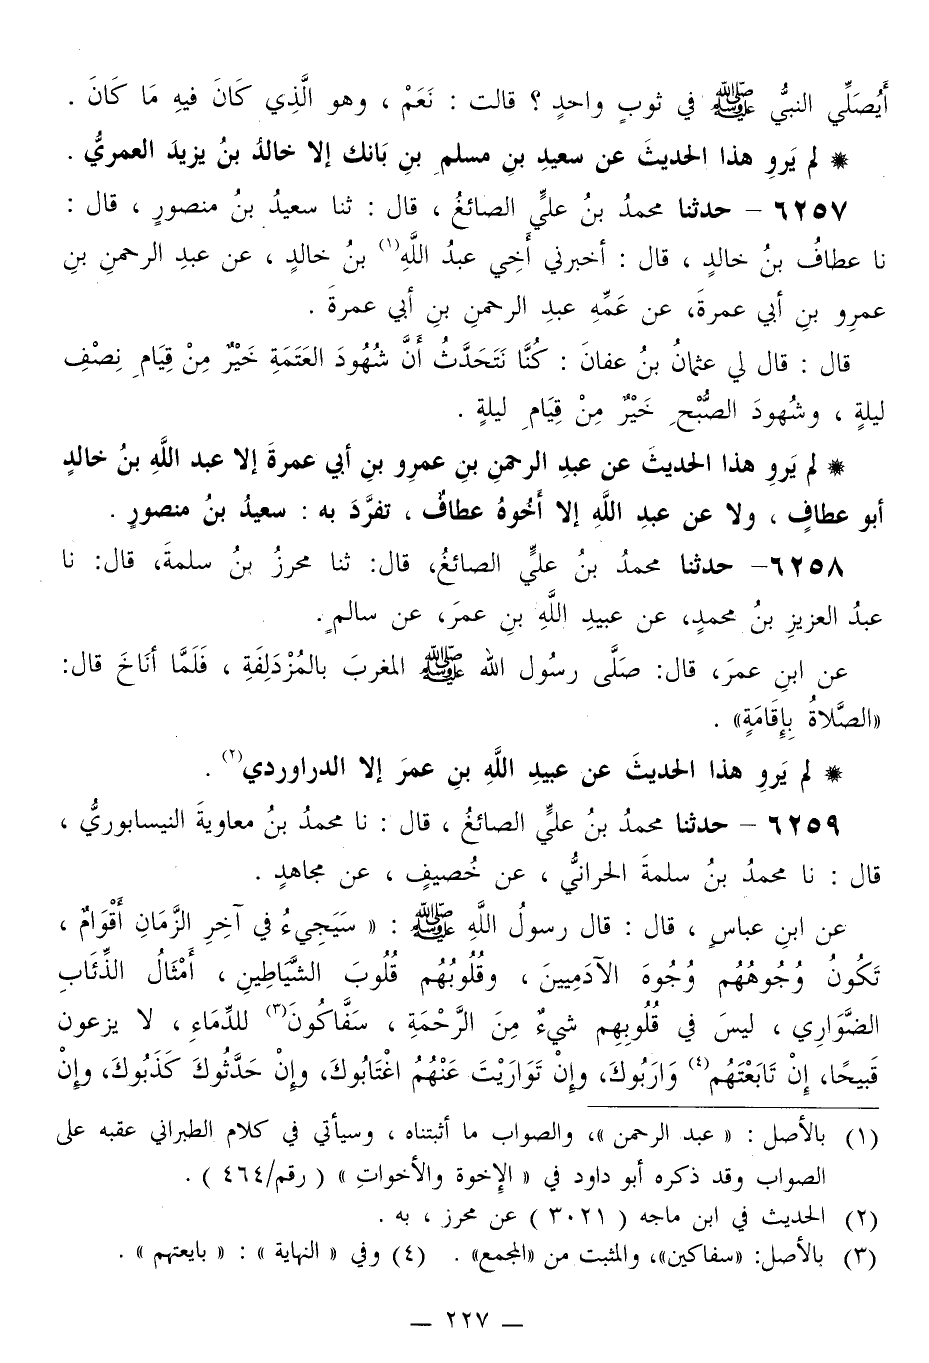 أَيُصَلِّي النبيُّ ﷺ في ثوبٍ واحدٍ ؟ قالت : نَعَمْ ، وهو الَّذِي كَانَ فيهِ مَا كَانَ .
* لم يَروِ هذا الحديثَ عن سعيدِ بنِ مسلمِ بنِ بَانك إلا خالدُ بنُ يزيدَ العمريُّ .
٦٢٥٧ – حدثنا محمدُ بنُ عليٍّ الصائغُ ، قال : ثنا سعيدُ بنُ منصورٍ ، قال :
نا عطافُ بنُ خالدٍ ، قال : أخبرني أَخِي عبدُ اللَّهِ(١) بنُ خالدٍ ، عن عبدِ الرحمنِ بنِ
عمرِو بنِ أبي عمرةَ، عن عَمِّهِ عبدِ الرحمنِ بنِ أبي عمرةَ .
قال : قال لي عثمانُ بنُ عفانَ : كُنَّا نَتَحَدَّثُ أَنَّ شُهُودَ العَتَمَةِ خَيْرٌ مِنْ قِيَامِ نِصْفِ
ليلةٍ ، وشُهودَ الصُّبْحِ خَيْرٌ مِنْ قِيَامِ ليلةٍ .
* لم يَروِ هذا الحديثَ عن عبدِ الرحمنِ بنِ عمرِو بنِ أبي عمرةَ إلا عبد اللَّهِ بنُ خالدٍ
أبو عطافٍ ، ولا عن عبدِ اللَّهِ إلا أَخُوهُ عطافٌ ، تفرَّدَ به : سعيدُ بنُ منصورٍ .
٦٢٥٨– حدثنا محمدُ بنُ عليٍّ الصائغُ، قال: ثنا محرزُ بنُ سلمةَ، قال: نا
عبدُ العزيزِ بنُ محمدٍ، عن عبيدِ اللَّهِ بنِ عمرَ، عن سالمٍ.
عن ابنِ عمرَ، قال: صَلَّى رسُول الله ﷺ المغربَ بالمُزْدَلِفَةِ ، فَلَمَّا أنَاخَ قال:
«الصَّلاةُ بِإِقَامَةٍ» .
* لم يَروِ هذا الحديثَ عن عبيدِ اللَّهِ بنِ عمرَ إلا الدراوردي(٢) .
٦٢٥٩ – حدثنا محمدُ بنُ عليٍّ الصائغُ ، قال : نا محمدُ بنُ معاويةَ النيسابوريُّ ،
قال : نا محمدُ بنُ سلمةَ الحرانيُّ ، عن خُصيفٍ ، عن مجاهدٍ .
عن ابنِ عباسٍ ، قال : قال رسولُ اللَّهِ ﷺ : « سَيَجِيءُ في آخِرِ الزَّمَانِ أَقْوَامٌ ،
تَكُونُ وُجُوهُهُم وُجُوهَ الآدَمِيينَ ، وقُلُوبُهُم قُلُوبَ الشَّيَاطِينِ ، أَمْثَالُ الذِّئَابِ
الضَّوَارِي ، ليسَ في قُلُوبِهِم شيءٌ مِنَ الرَّحْمَةِ ، سَفَّاكُونَ(٣) للدِّمَاءِ ، لا يزعون
قَبيحًا، إِنْ تَابَعْتَهُم(٤) وَارَبُوكَ، وإِنْ تَوَارَيْتَ عَنْهُمُ اغْتَابُوكَ، وإِنْ حَدَّثُوكَ كَذَبُوكَ، وإِنْ
(١) بالأصل : « عبد الرحمن »، والصواب ما أثبتناه ، وسيأتي في كلام الطبراني عقبه على
الصواب وقد ذكره أبو داود في « الإخوة والأخوات » ( رقم/٤٦٤ ) .
(٢) الحديث في ابن ماجه ( ٣٠٢١ ) عن محرز ، به .
(٣) بالأصل: «سفاكين»، والمثبت من «المجمع» . (٤) وفي « النهاية » : « بايعتهم » .
— ٢٢٧ —